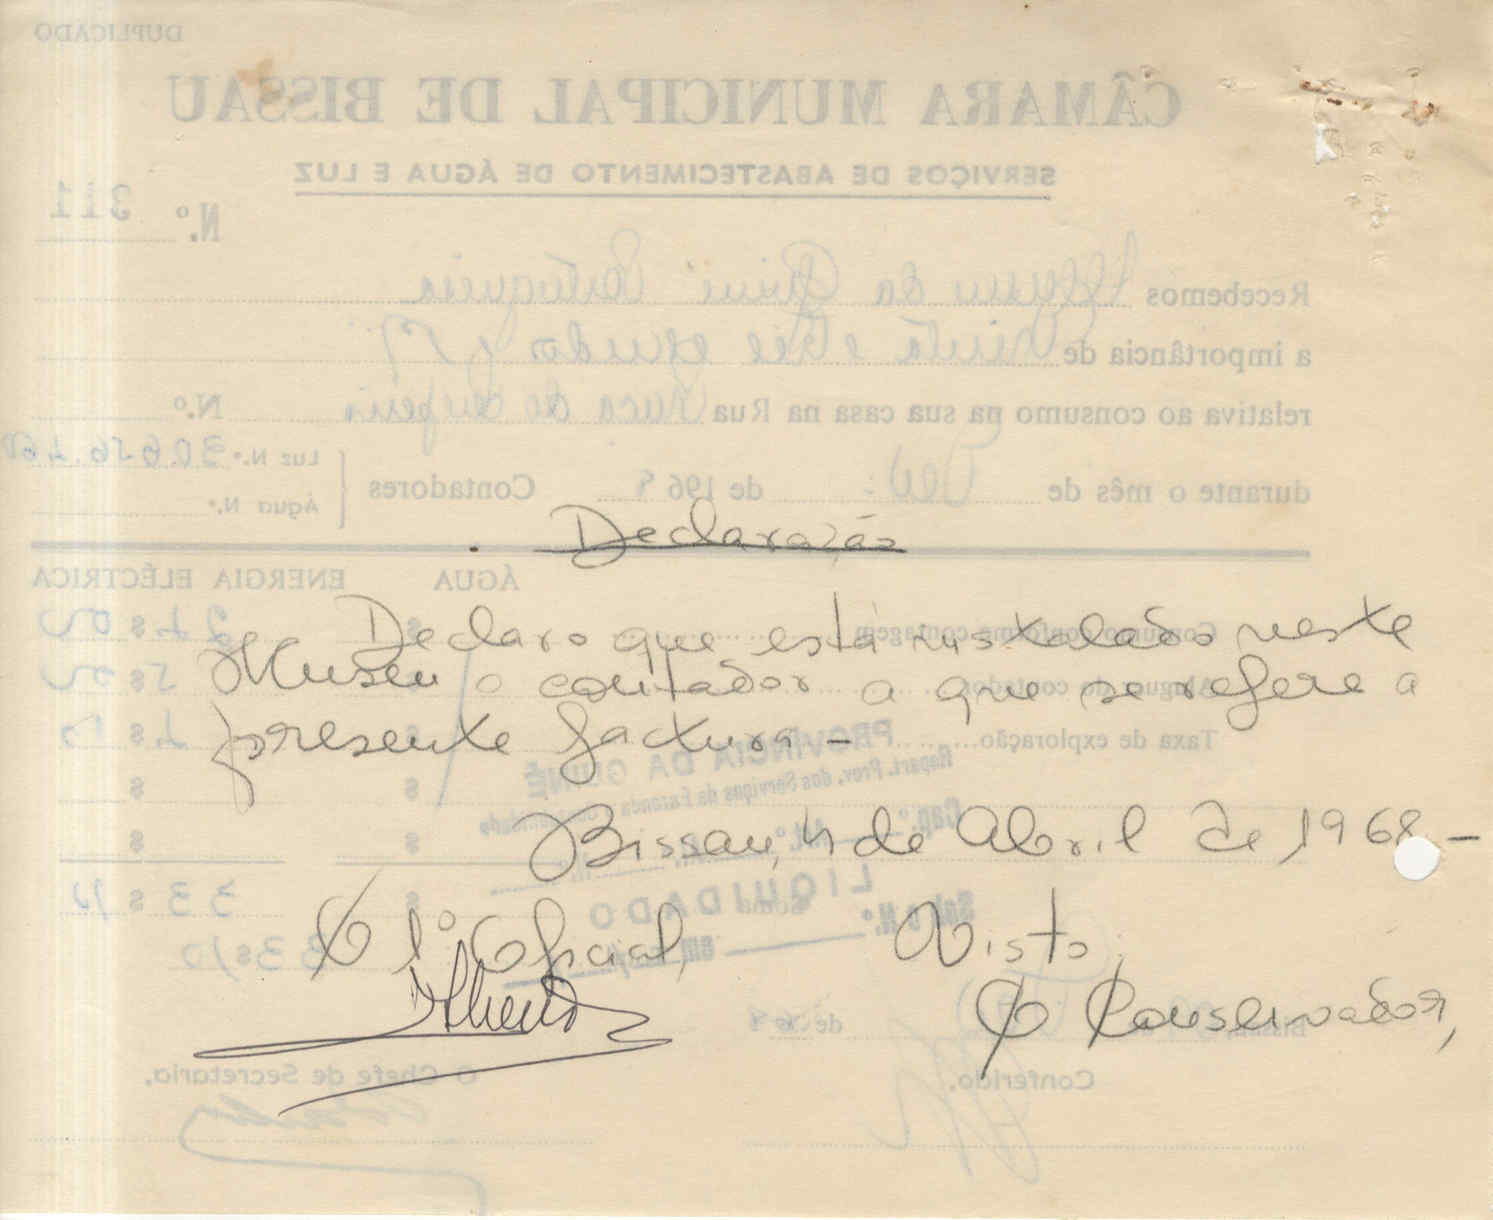 DUPLICADO
CÂMARA MUNICIPAL DE BISSAU
SERVIÇOS DE ABASTECIMENTO DE ÁGUA E LUZ
N.º 311
Recebemos Museu da Guiné Portuguesa
a importância de trinta e três escudos
relativa ao consumo na sua casa na Rua Praça do Império N.º
durante o mês de de 1968 Contadores
Luz N.º
Água N.º
Declaração
ÁGUA ENERGIA ELÉCTRICA
Consumo conforme contagem
Declaro que está instalado neste
Museu o contador a que se refere a
Aluguer do contador
presente factura -
Taxa de exploração
PROVÍNCIA DA GUINÉ
Repart. Prov. dos Serviços de Fazenda e Contabilidade
Cap.º Art.º
Bissau, 4 de Abril de 1968 -
LIQUIDADO
Soma
O 1º Oficial, Visto,
O Conservador,
Bissau, de 68
Conferido. O Chefe de Secretaria,